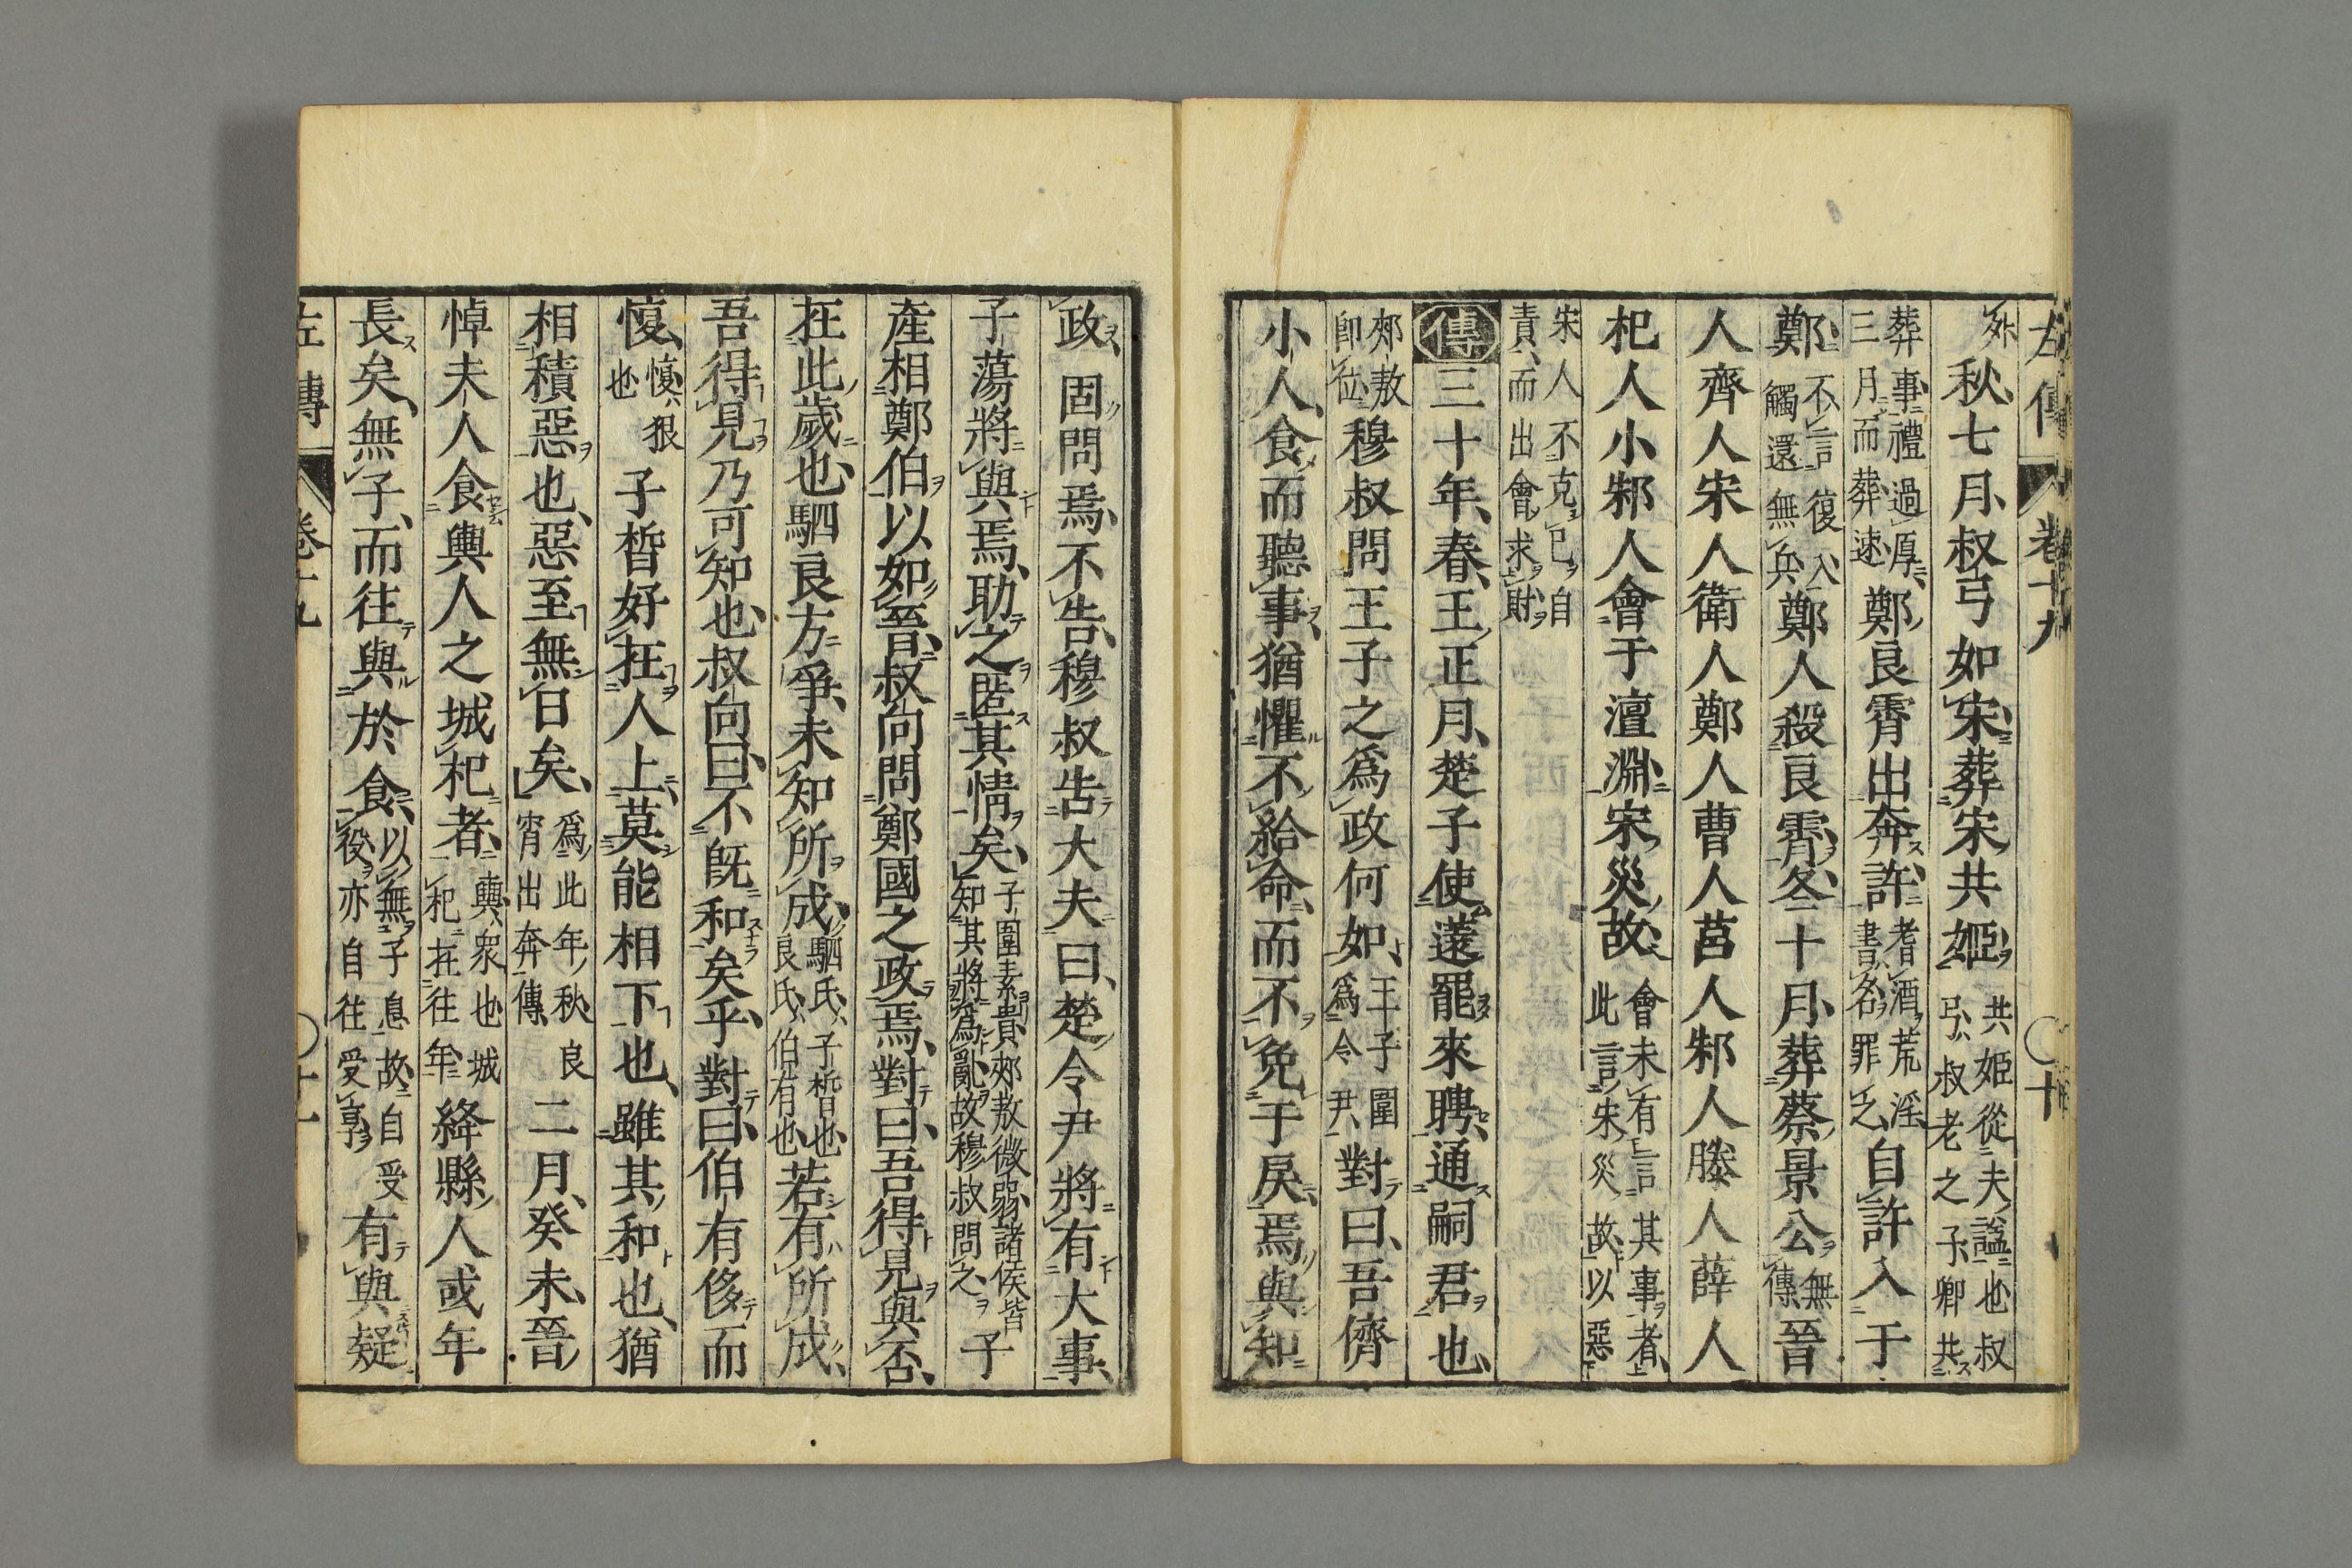 左傳 卷十九 〇十
外 秋七月叔弓如宋葬宋共姬 共姬從夫謚也叔弓叔老之子卿共
葬事禮過厚三月而葬速 鄭良霄出奔許 耆酒荒淫書名罪之 自許入于
鄭 不言復入觸還無兵 鄭人殺良霄冬十月葬蔡景公 無傳 晉
人齊人宋人衛人鄭人曹人莒人邾人滕人薛人
杞人小邾人會于澶淵宋災故 會未有言其事者此言宋災故以惡
宋人不克己自責而出會求財
傳三十年春王正月楚子使薳罷來聘通嗣君也
郟敖即位 穆叔問王子之爲政何如 王子圍爲令尹 對曰吾儕
小人食而聽事猶懼不給命而不免于戾焉與知
政固問焉不告穆叔告大夫曰楚令尹將有大事
子蕩將與焉助之匿其情矣 子圍素貴郟敖微弱諸侯皆知其將爲亂故穆叔問之 子
產相鄭伯以如晉叔向問鄭國之政焉對曰吾得見與否
在此歲也駟良方爭未知所成 駟氏子皙也良氏伯有也 若有所成
吾得見乃可知也叔向曰不旣和矣乎對曰伯有侈而
愎 愎狠也 子皙好在人上莫能相下也雖其和也猶
相積惡也惡至無日矣 爲此年秋良宵出奔傳 二月癸未晉
悼夫人食輿人之城杞者 輿衆也城杞在往年 絳縣人或年
長矣無子而往與於食 以無子息故自受役亦自往受享 有與疑
左傳 卷十九 〇十一